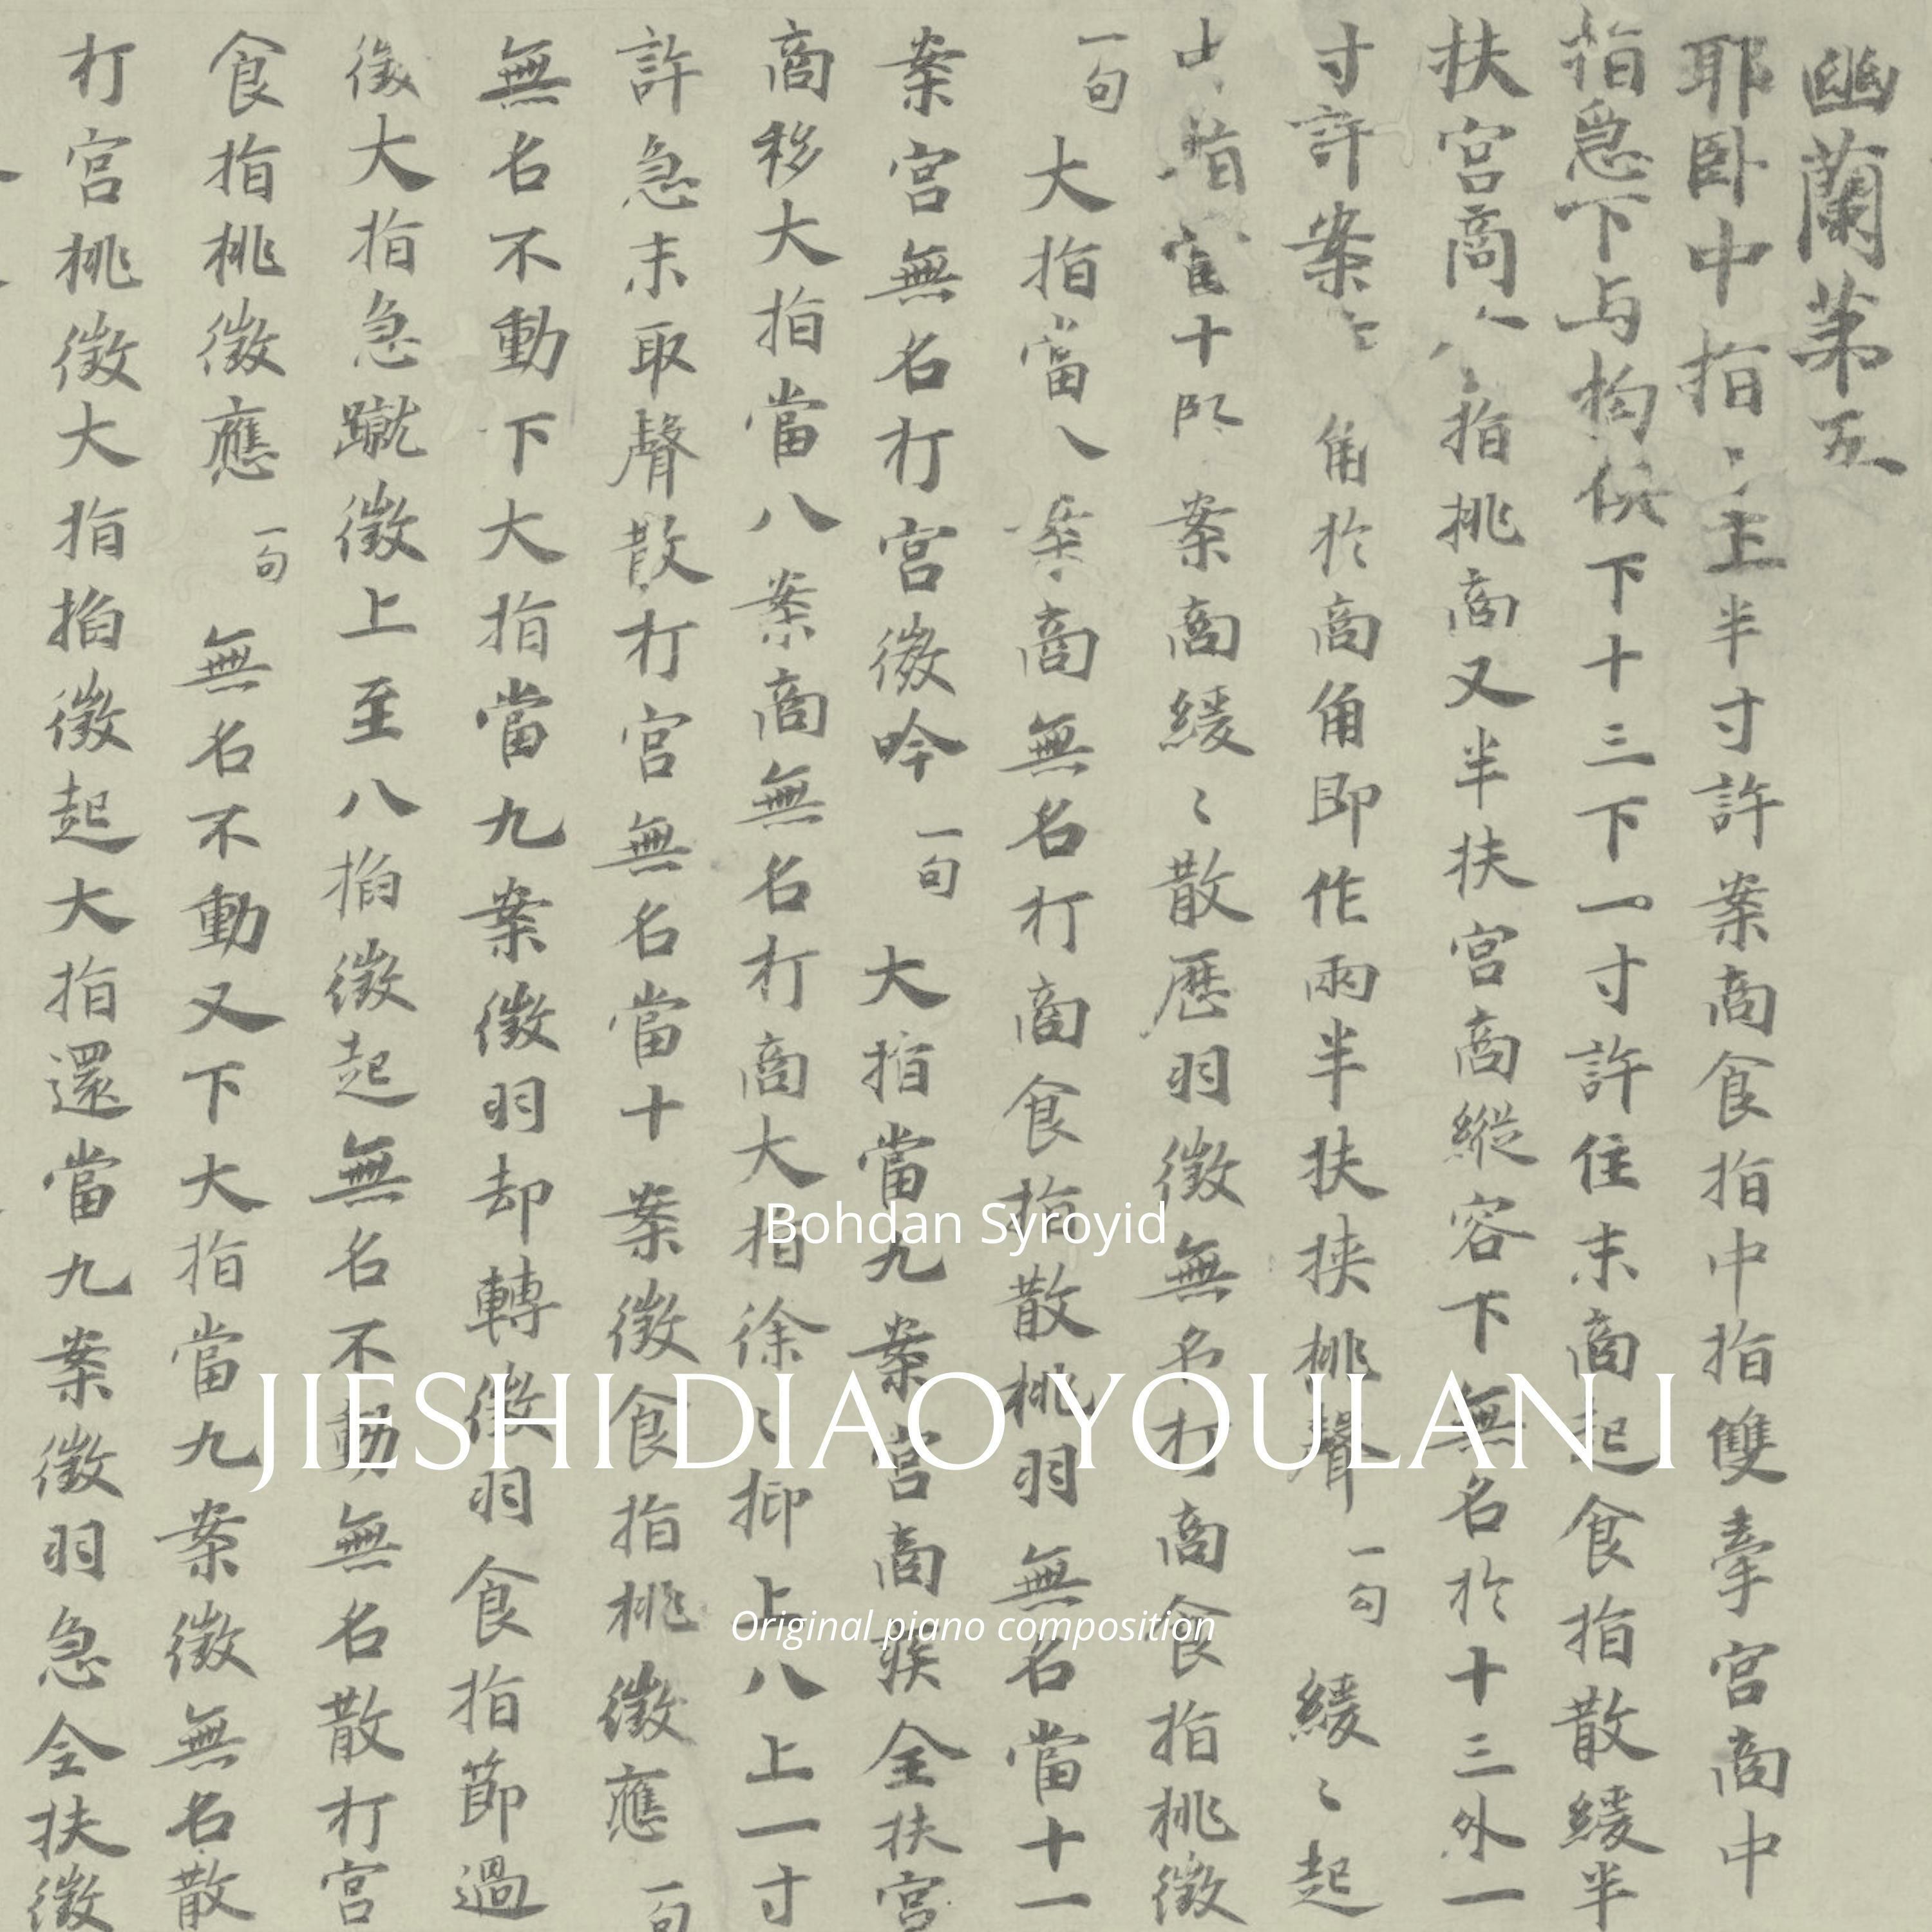 幽蘭第五
耶臥中指上半寸許案商食指中指雙牽宮商中
指急下与拘俱下十三下一寸許住末商起食指散緩半
扶宮商食指挑商又半扶宮商縱容下無名於十三外一
寸許案商角於商角即作兩半扶挾挑聲一句緩〻起
指當十案商緩〻散歷羽徵無名打商食指挑徵
一句大指當八案商無名打商食指散挑羽無名當十一
案宮無名打宮徵吟一句大指當九案宮商疾全扶宮
商移大指當八案商無名打商大指徐〻抑上八上一寸
許急末取聲散打宮無名當十案徵食指挑徵應一句
無名不動下大指當九案徵羽却轉徵羽食指節過
徵大指急蹴徵上至八掐徵起無名不動無名散打宮
食指挑徵應一句無名不動又下大指當九案徵無名散
打宮挑徵大指掐徵起大指還當九案徵羽急全扶徵
Bohdan Syroyid
JIESHI DIAO YOULAN I
Original piano composition